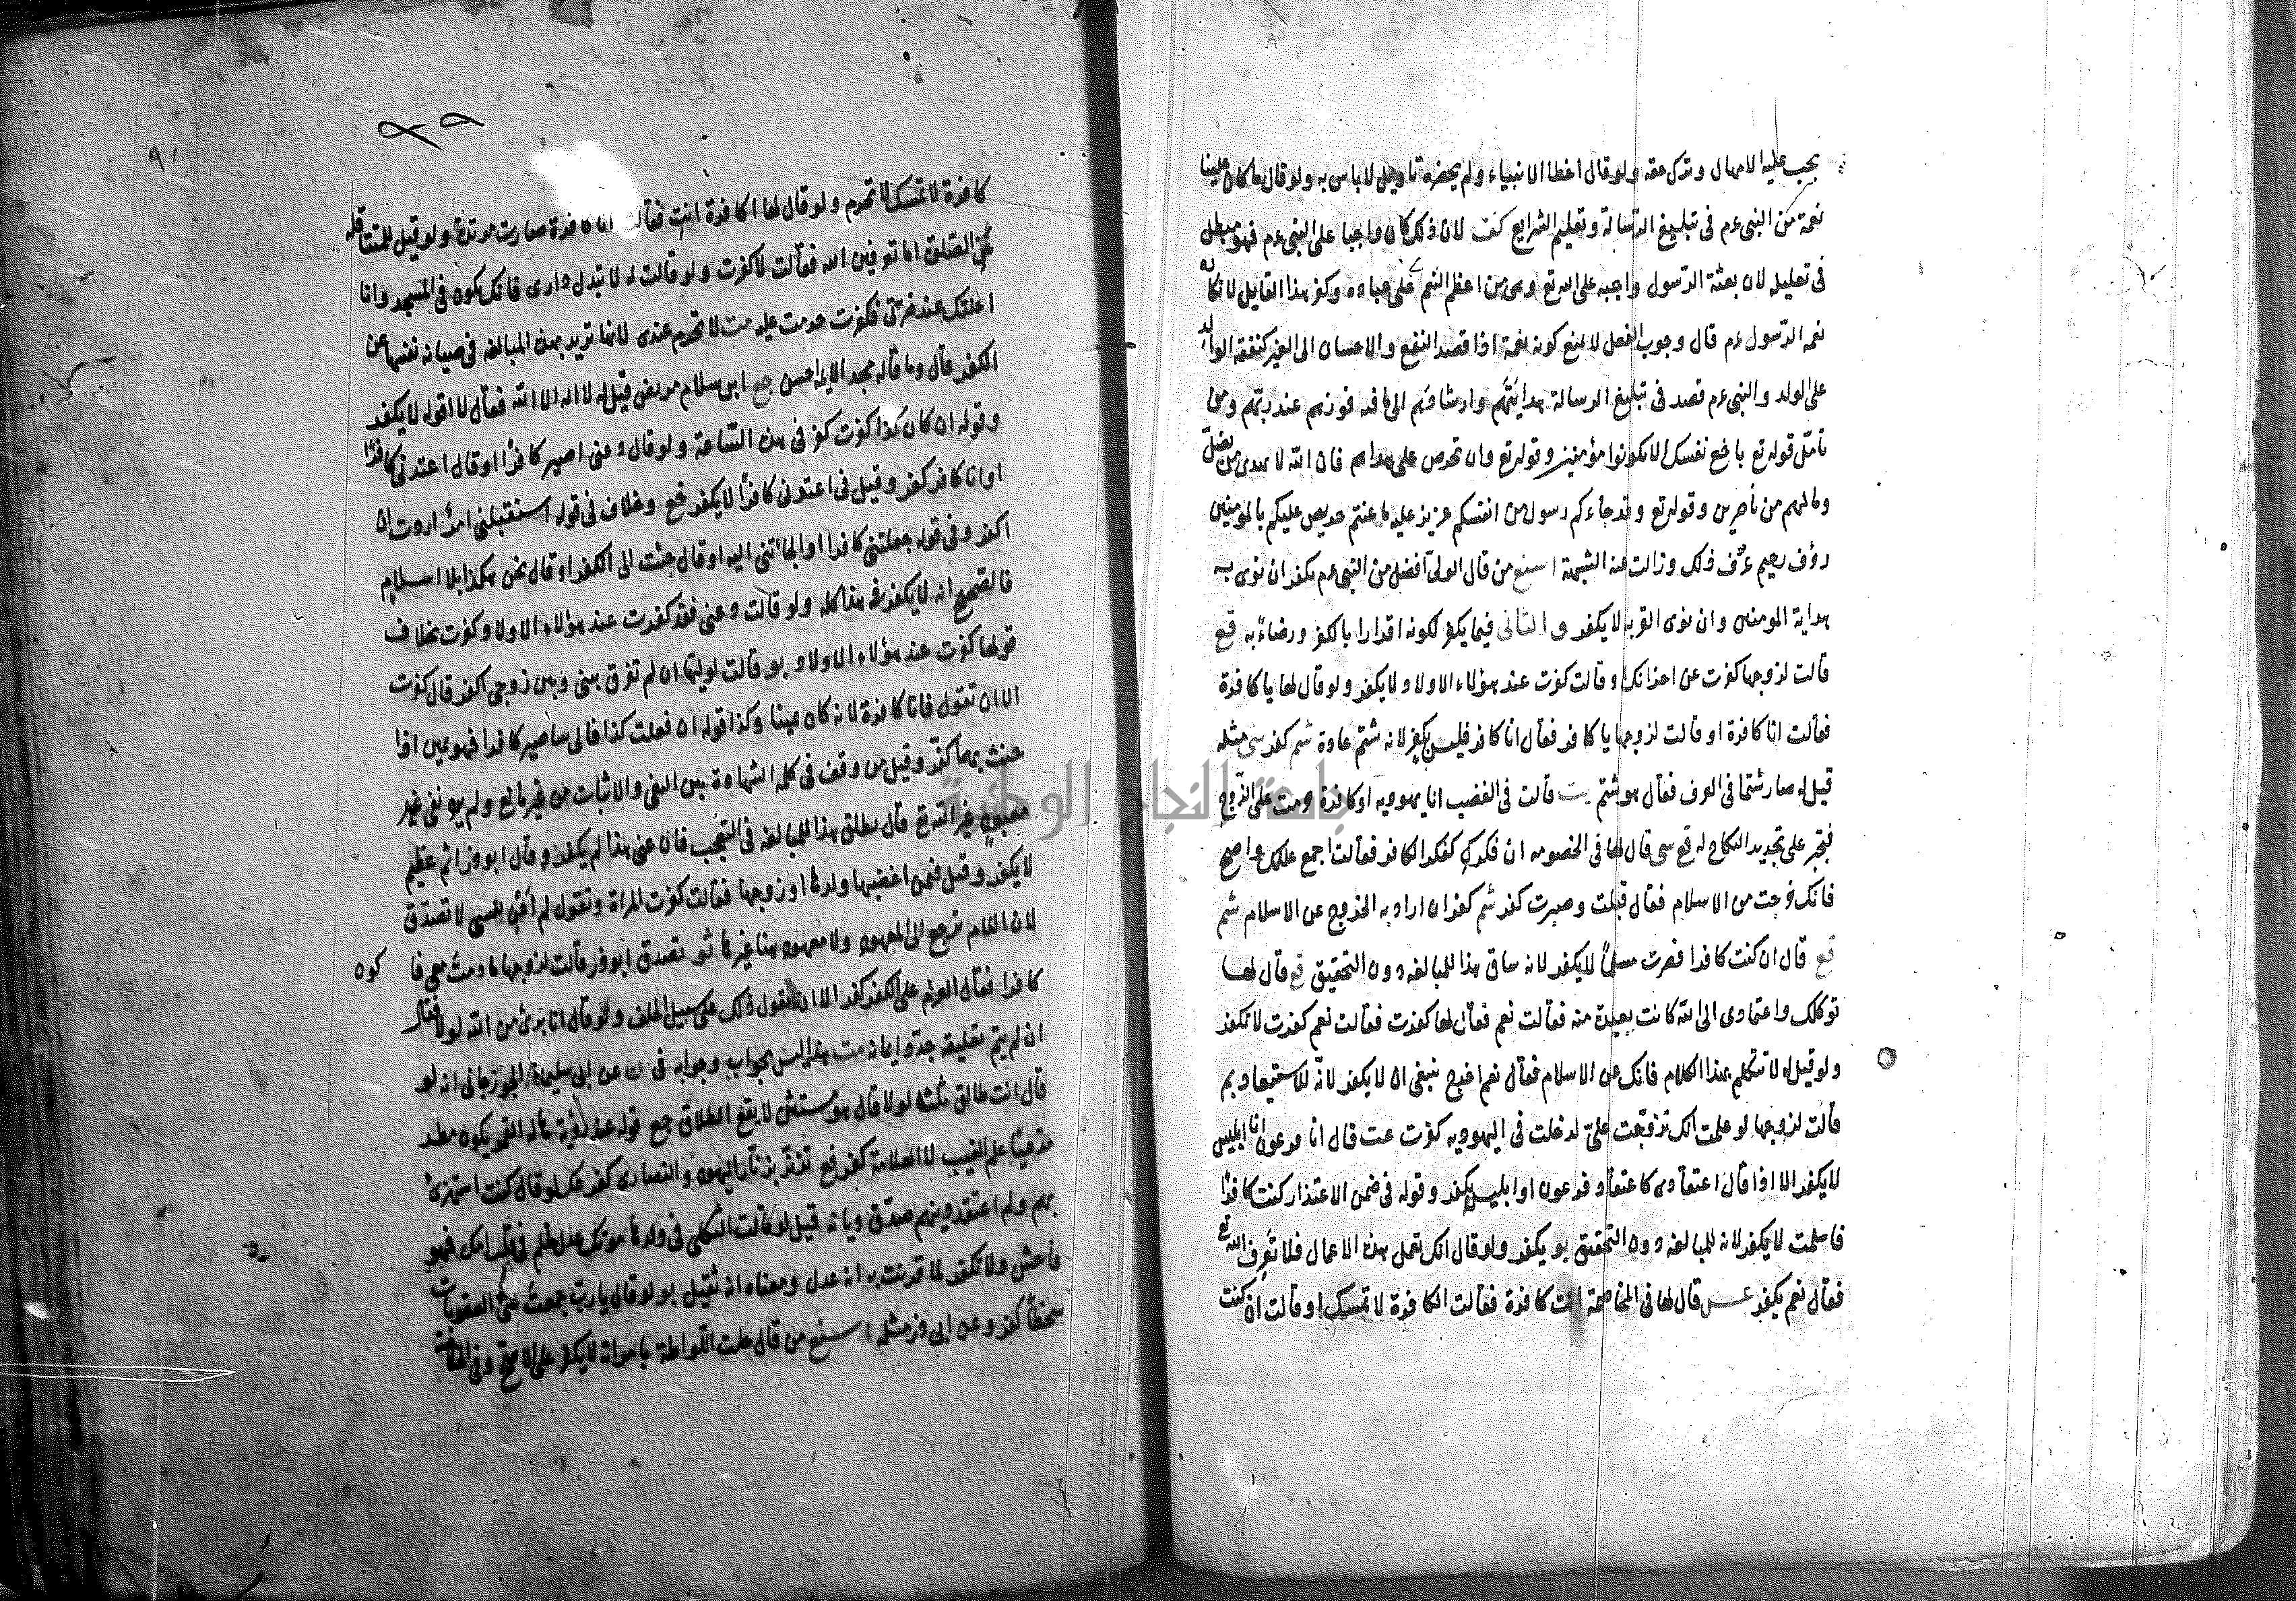 يجب عليه الامهال وترك عقه ولو قال اخطا الانبياء ولم يحضره تاويل لا باس به ولو قال ما كان علينا
نعمة من النبى ءم فى تبليغ الرسالة وتعليم الشرايع كفر لان ذلك كان واجبا على النبى ءم فهو مبطل
فى تعليله لان بعثة الرسول واجبه على الله تع وهى من اعظم النعم على عباده وكفر هذا القايل لانكاره
نعمه الرسول ءم قال وجوب الفعل لا يمنع كونه نعمة اذا قصد النفع والاحسان الى الغير كنفقة الوالد
على الولد والنبى ءم قصد فى تبليغ الرسالة هدايتهم وارشادهم الى ما فيه فوزهم عند ربهم ومن
تامل قوله تع باخع نفسك الا يكونوا مؤمنين وقوله تع وان تحرص على هداهم فان الله لا يهدى من يضل
وما لهم من ناصرين وقوله تع وقد جاءكم رسول من انفسكم عزيز عليه ما عنتم حريص عليكم بالمؤمنين
رؤف رحيم عرف ذلك وزالت عنه الشبهة من قال الولى افضل من النبى ءم يكفر ان نوى به
هداية المومنين وان نوى القربه لا يكفر و فيما يكفر لكونه اقرارا بالكفر ورضاءً به قع
قالت لزوجها كفرت عن احزانك وقالت كفرت عند هؤلاء الاولاد لا يكفر ولو قال لها يا كافرة
فقالت انا كافرة او قالت لزوجها يا كافر فقال انا كافر فليس بكفر لانه شتم عادة شم كفر سى مثله
قيل له صار شتما فى العرف فقال هو شتم قالت فى الغضب انا يهوديه او كافرة حرمت على الزوج
فتجبر على تجديد النكاح له قع سى قال لها فى الخصومه ان فكرك كفكر الكافر فقالت اجمع علمك واصح
فانك خرجت من الاسلام فقال قبلت وصبرت كفر شم كفر ان اراد به الخروج عن الاسلام شم
قع قال ان كنت كافرا فصرت مسلماً لا يكفر لانه ساق هذا للمبالغه دون التحقيق قع قال لها
توكلك واعتمادى الى الله كانت بعيدة منه فقالت نعم فقال لها كفرت فقالت نعم كفرت لا تكفر
ولو قيل له لا تتكلم بهذا الكلام فانك عن الاسلام فقال نعم اخرج ينبغى ان لا يكفر لانه للاستبعاد بم
قالت لزوجها لو علمت انك تزوجت على لدخلت فى اليهوديه كفرت عت قال انا فرعون انا ابليس
لا يكفر الا اذا قال اعتقادى كاعتقاد فرعون او ابليس يكفر وقوله فى ضمن الاعتذار كنت كافرًا
فاسلمت لا يكفر لانه للمبالغه دون التحقيق بو يكفر ولو قال انك تعمل هذه الاعمال فلا تعرف الله تع
فقال نعم يكفر قال لها فى المخاصمة انت كافرة فقالت الكافرة لا تمسك او قالت ان كنت
كافرة لا تمسك لا تحرم ولو قال لها اكافرة انت فقالت انا كافرة صارت مرتدة ولو قيل
الصلوة اما توفين الله فقالت كفرت ولو قالت له لا تبدل دارى فانك تكون فى المسجد وانا
عند ضرتى فكفرت حرمت عليه مت لا تحرم عندى لانها تريد بهذه المبالغه فى صيانه نفسها عن
الكفر قال وما قاله مجد الايمه احسن جع ابن سلام مريض قيل له لا اله الا الله فقال لا اقوله لا يكفر
وقوله ان كان كذا كفرت كفر فى هذه الساعة ولو قال دعنى اصير كافرًا او قال اعتدنى كافرًا
او انا كافر كفر وقيل فى اعتدنى كافرًا لا يكفر خع وخلاف فى قوله استقبلنى امر اردت ان
اكفر وفى قوله جعلتنى كافرا او الجاتنى اليه او قال جئت الى الكفر او قال نحن هكذا بلا اسلام
فالصحيح انه لا يكفر فى هذا كله ولو قالت دعنى فقد كفرت عند هؤلاء الاولاد كفرت بخلاف
قولها كفرت عند هؤلاء الاولاد بو قالت لوليها ان لم تفرق بينى وبين زوجى اكفر قال كفرت
الا ان تقول فانا كافرة لانه كان يمينا وكذا قوله ان فعلت كذا فانى ساصير كافرا فهو يمين اذا
حنث يمينا كفر وقيل من وقف فى كلمة الشهادة بين النفى والاثبات من غير مانع ولم ينو نفى غير
معبود غير الله تع قال يطلق هذا للمبالغه فى التعجب فان عنى هذا لم يكفر وقال ابو ذر اثم عظيم
لا يكفر وقيل فمن اغضبها ولدها او زوجها فقالت كفرت المراة وتقول لم اعن نفسى لا تصدق
لان الكلام ترجع الى المعهود ولا معهود هنا غيرها شو تصدق ابو ذر قالت لزوجها ما دمت معى فا
كون
كافرا فقال العزم على الكفر كفر الا ان تقول ذلك على سبيل الحلف ولو قال انا برئ من الله لولا فقال
ان لم يتم تعليقه جدد ايمانه مت هذا ليس بجواب وجوابه فى ن عن ابى سليمان الجوزجانى انه لو
قال انت طالق ثلثا لولا قال لا يقع الطلاق جع قوله عند رؤية هاله القمر يكون مطر
مدعيًا علم الغيب لا العلامة كفر قع تزنر بزنار اليهود والنصارى كفر عك لو قال كنت استهزئ
بهم ولم اعتقد دينهم صدق ديانه قيل لو قالت الثكلى فى ولدها موتك عدل ظلم فى قلب امك فهو
فاحش ولا تكفر لما قرنت به انه عدل ومعناه انه ثقيل بو لو قال يا رب جمعت على العقوبات
سخطاً كفر وعن ابى ذر مثله من قال حلت اللواطة بامراته لا يكفر على الاصح وفى